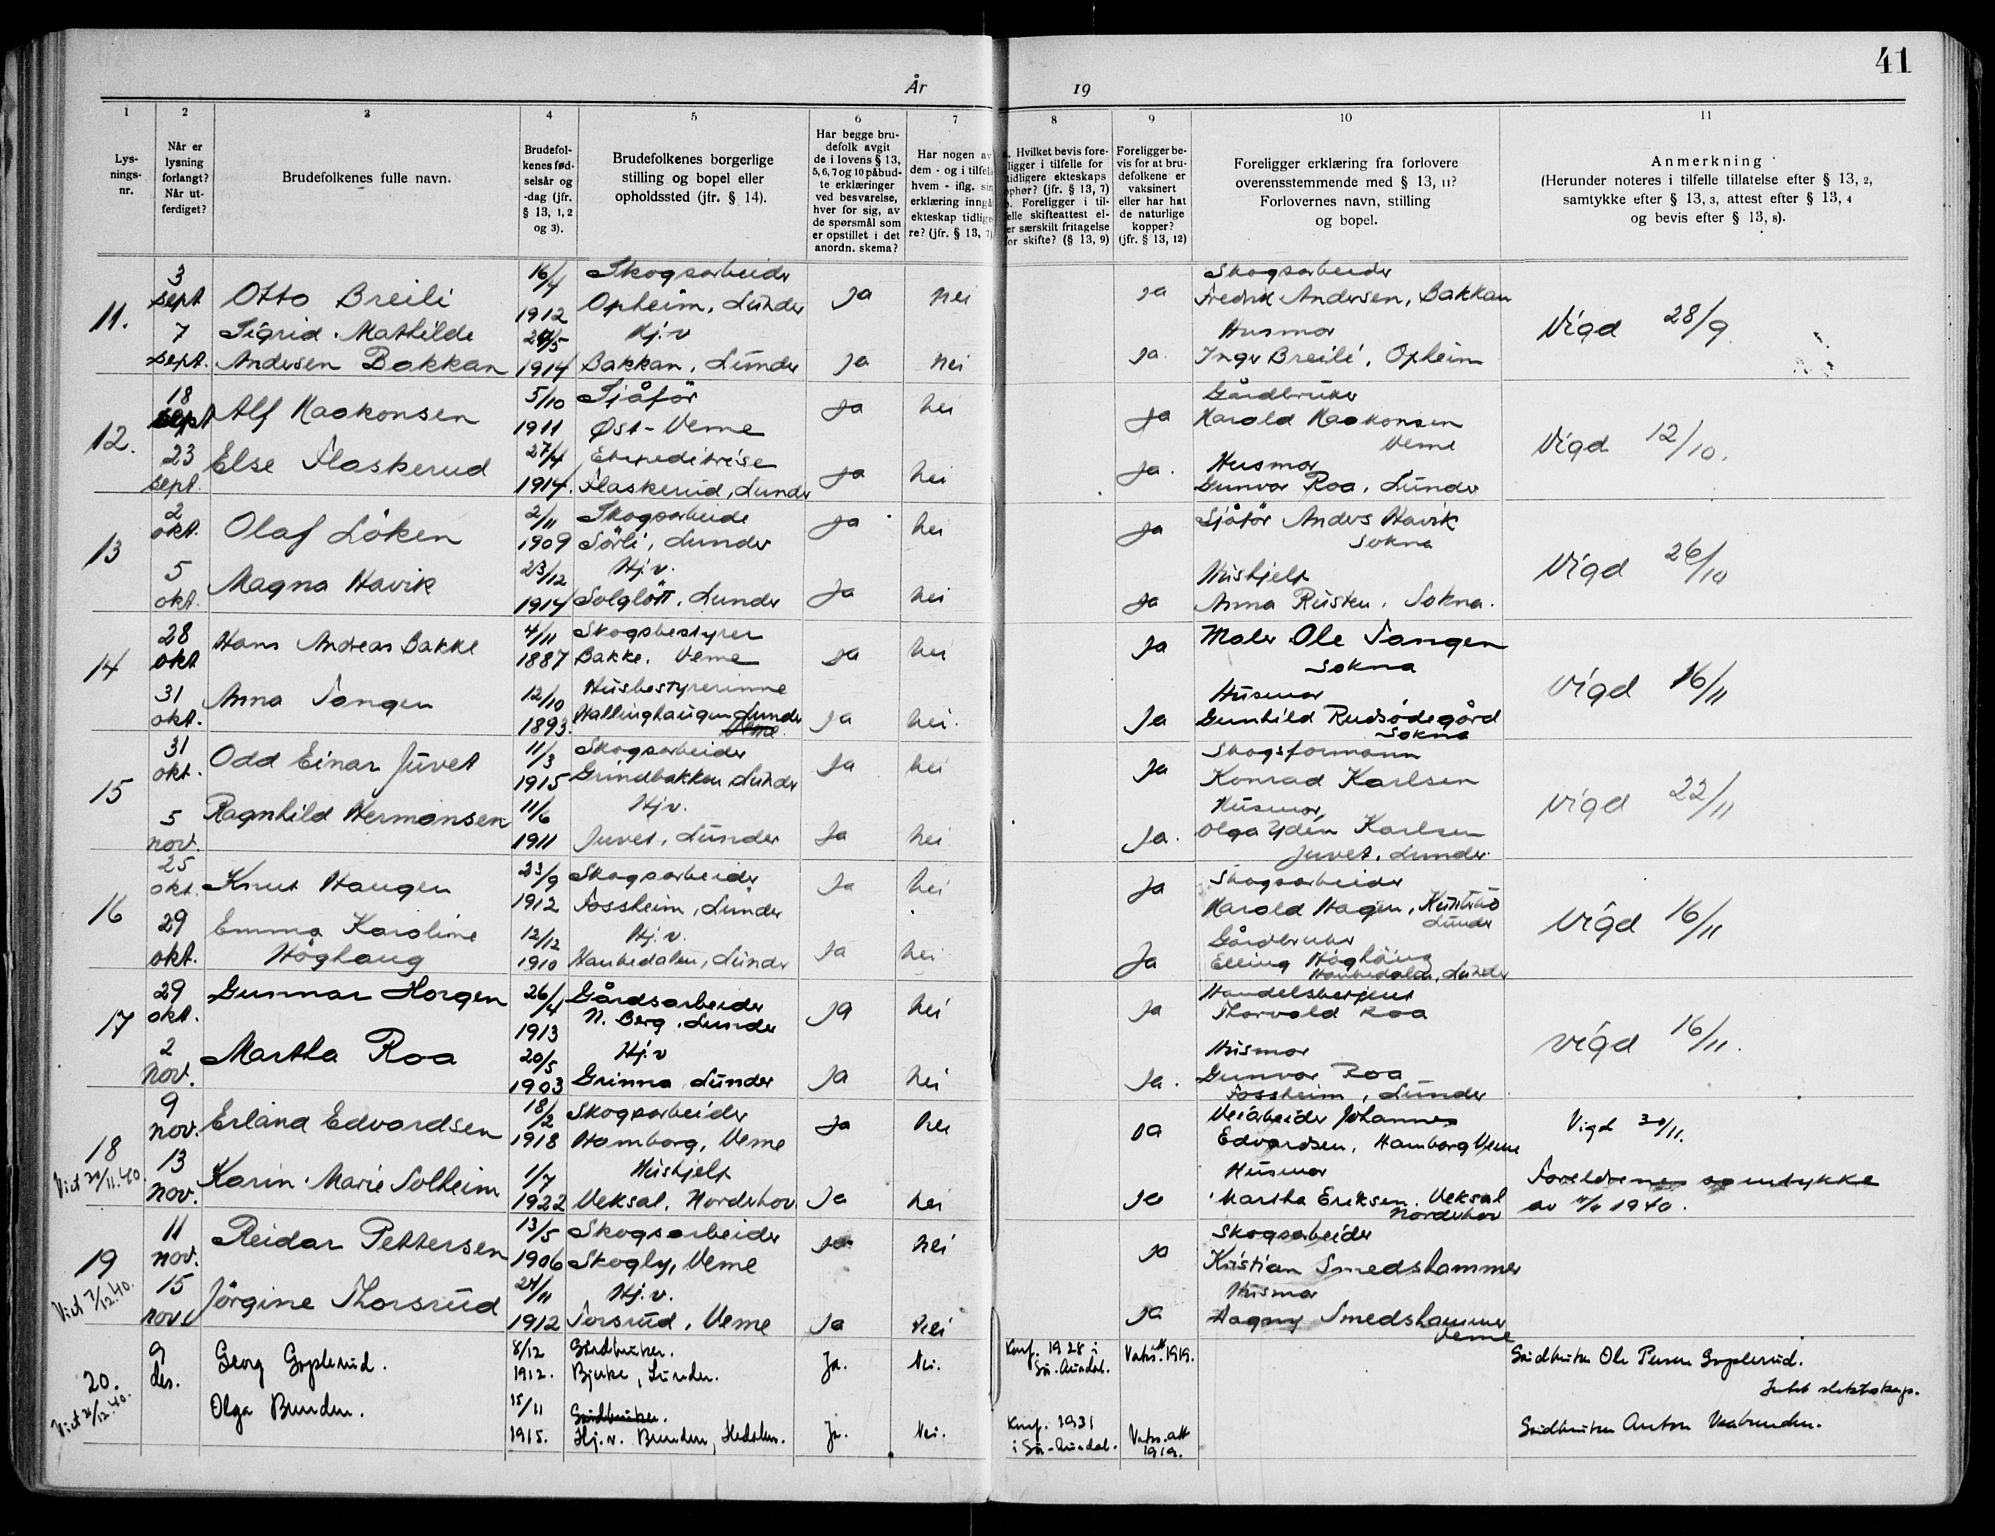 41
År 19
1 2 3 4 5 6 7 8 9 10 11
Lys-
nings-
nr.
Når er
lysning
forlangt?
Når ut-
ferdiget?
Brudefolkenes fulle navn.
Brudefol-
kenes fød-
selsår og
-dag (jfr.
§ 13, 1, 2
og 3).
Brudefolkenes borgerlige
stilling og bopel eller
opholdssted (jfr. § 14).
Har begge bru-
defolk avgit
de i lovens § 13,
5, 6, 7 og 10 påbud-
te erklæringer
ved besvarelse,
hver for sig, av
de spørsmål som
er opstillet i det
anordn. skema?
Har nogen av
dem - og i tilfelle
hvem - iflg. sin
erklæring inngå
ekteskap tidlige-
re? (jfr. § 13, 7)
a. Hvilket bevis fore-
ligger i tilfelle for
tidligere ekteskaps
ophør? (jfr. § 13, 7)
b. Foreligger i til-
felle skifteattest el-
er særskilt fritagelse
for skifte? (§ 13, 9)
Foreligger be-
vis for at bru-
defolkene er
vaksinert
eller har hat
de naturlige
kopper?
(jfr. § 13, 12)
Foreligger erklæring fra forlovere
overensstemmende med § 13, 11?
Forlovernes navn, stilling
og bopel.
Anmerkning
(Herunder noteres i tilfelle tillatelse efter § 13, 2,
samtykke efter § 13, 3, attest efter § 13, 4
og bevis efter § 13, 8).
11.
3 sept
Otto Breili
16/4 1912
Skogsarbeider
Opheim, Lunder
ja nei ja
Skogsarbeider
Fredrik Andersen, Bakkan
Vigd 28/9
7 sept.
Sigrid Mathilde
Andersen Bakkan
/5 1914
Hj.v
Bakkan, Lunder
ja nei ja.
Husmor
Inger Breili, Opheim
12.
18 sept
Alf Haakonsen
5/10 1911
Sjåfør
Øst-Veme
ja nei ja
Gårdbruker
Harald Haakonsen
Veme
Vigd 12/10.
23 sept.
Else Flaskerud
27/4 1914.
Ekspeditrise
Flaskerud, Lunder
ja nei ja.
Husmor
Gunvor Roa, Lunder
13
2 okt.
Olaf Löken
2/11 1909
Skogsarbeide
Sörli, Lunder
ja nei ja
Sjåför Anders Havik
Sokna
Vigd 26/10
5 okt.
Magna Havik
23/12 1914
Hj.v.
Solglött, Lunder
Ja nei ja
Hushjelp
Anna Rustu, Sokna.
14
28 okt
Hans Andreas Bakke
4/11 1887
Skogsbestyrer
Bakke, Veme
ja nei Ja
Maler Ole Tangen
Sokna
Vigd 16/11
31 okt.
Anna Tangen
12/10 1893.
Husbestyrerinne
Hallinghaugen Lunder
Veme
Ja nei. Ja
Husmor
Gunhild Rudsødegård
Sokna
15
31 okt.
Odd Einar Juvet
11/3 1915
Skogsarbeider
Grindbakken Lunder
Ja nei Ja
Skogsformann
Konrad Karlsen
Vigd 22/11
5 nov.
Ragnhild Hermansen
11/6 1911
Hj.v.
Juvet, Lunder
Ja nei Ja.
Husmor,
Olga Karlsen
Juvet, Lunder
16
25 okt.
Knut Haugen
23/9 1912
Skogsarbeider
Fossheim, Lunder
Ja nei Ja
Skogsarbeider
Harald Hagen,
Lunder
Vigd 16/11
29 okt.
Emma Karoline
Höghaug
12/12 1910
Hj.v.
Haubedalen, Lunder
Ja nei Ja
Gårdbruker
Elling Höghaug
Haubedalen, Lunder
17
29 okt.
Gunnar Horgen
26/4 1913
Gårdsarbeider
N. Berg, Lunder
ja nei Ja
Handelsbetjent
Thorvald Roa
vigd 16/11.
2 nov.
Martha Roa
20/5 1903
Hj.v
Grinna Lunder
Ja nei Ja.
Husmor
Gunvor Roa
Fossheim, Lunder
18
9 nov.
Erland Edvardsen
18/2 1918
Skogsarbeider
Hamborg, Veme
Ja nei ja
Veiarbeider Johannes
Edvardsen, Hamborg Veme
Vigd 30/11.
13 nov.
Karin Marie Solheim
1/7 1922
Hushjelp
Veksal, Norderhov
Ja nei ja
Husmor
Martha Eriksen, Veksal
Norderhov
Foreldrenes samtykke
av 1940.
19
11 nov.
Reidar Pettersen
13/5 1906
Skogsarbeider
Skogly, Veme
ja nei ja
Skogsarbeider
Kristian Smedshammer
Viet 7/12.40.
15 nov
Jörgine Thorsrud
24/11 1912
Hj.v.
Torsrud, Veme
Ja nei ja
Husmor
Dagny Smedshammer
Veme
20.
9 des.
Georg Goplerud.
8/12 1912.
Gårdbruker.
Bjerke, Lunder.
Ja. Nei.
Konf. 1928 i
Sø.-Aurdal.
Vaks. att 1919.
Gårdbruker Ole Persen Goplerud.
Intet slektskap.
Olga Brunden.
15/11 1915.
Gårdbruker.
Hj.v. Brunden, Hedalen.
Ja. Nei.
Konf. 1931
i Sø-Aurdal.
Vaks. att
1919.
Gårdbruker Anton